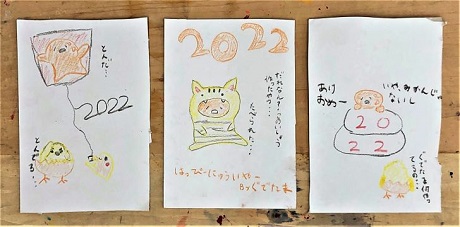 とんだ…
2022
とんでる…
2022
だれなん？このいしょう
作ったやつ…
たべられた…
はっぴーにゅういやー
Byぐでたま
いや、みかんじゃ
ないし
あけ
おめー
20
22
ぐでたま何やっ
てるの…